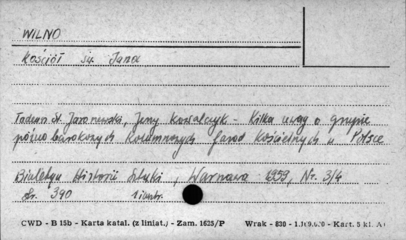 WILNO
Kościół św. Jana
Tadeusz St. Jaroszewski, Jerzy Kowalczyk - Kilka uwag o grupie
późno barokowych kolumnowych fasad kościelnych w Polsce
Biuletyn Historii Sztuki, Warszawa 1959, Nr. 3/4
str. 390 1 ilustr.
CWD - B 15b - Karta katal. (z liniat.) - Zam. 1625/P Wrak - 830 -